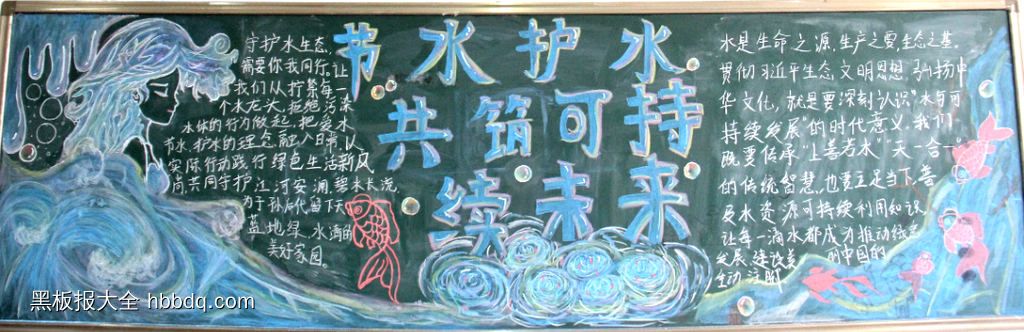 节水护水
共筑可持
续未来
守护水生态,
需要你我同行。让
我们从拧紧每一
个水龙头,拒绝污染
水体的行为做起,把爱水
节水、护水的理念融入日常,以
实际行动践行绿色生活新风
尚,共同守护江河安澜、碧水长流,
为子孙后代留下天
蓝、地绿、水清的
美好家园。
水是生命之源,生产之要,生态之基。
贯彻习近平生态文明思想,弘扬中
华文化,就是要深刻认识“水与可
持续发展”的时代意义。我们
既要传承“上善若水”“天一合一”
的传统智慧,也要立足当下,普
及水资源可持续利用知识,
让每一滴水都成为推动绿色
发展、建设美丽中国的
生动注脚
黑板报大全 hbbdq.com